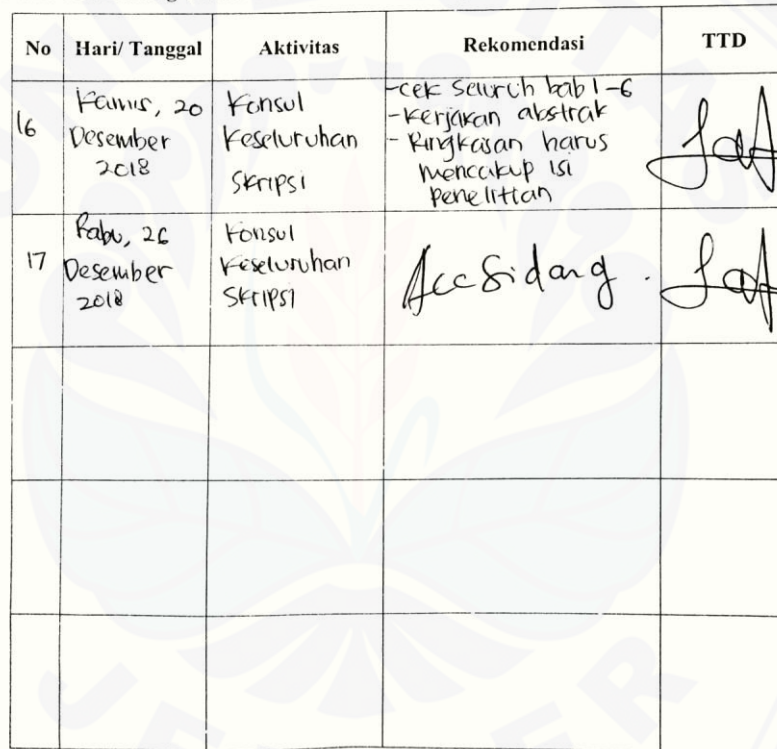 No Hari/ Tanggal Aktivitas Rekomendasi TTD
16
Kamis, 20
Desember
2018
Konsul
Keseluruhan
Skripsi
-cek seluruh bab 1-6
-kerjakan abstrak
- Ringkasan harus
mencakup isi
penelitian
17
Rabu, 26
Desember
2018
Konsul
Keseluruhan
Skripsi
Acc Sidang.